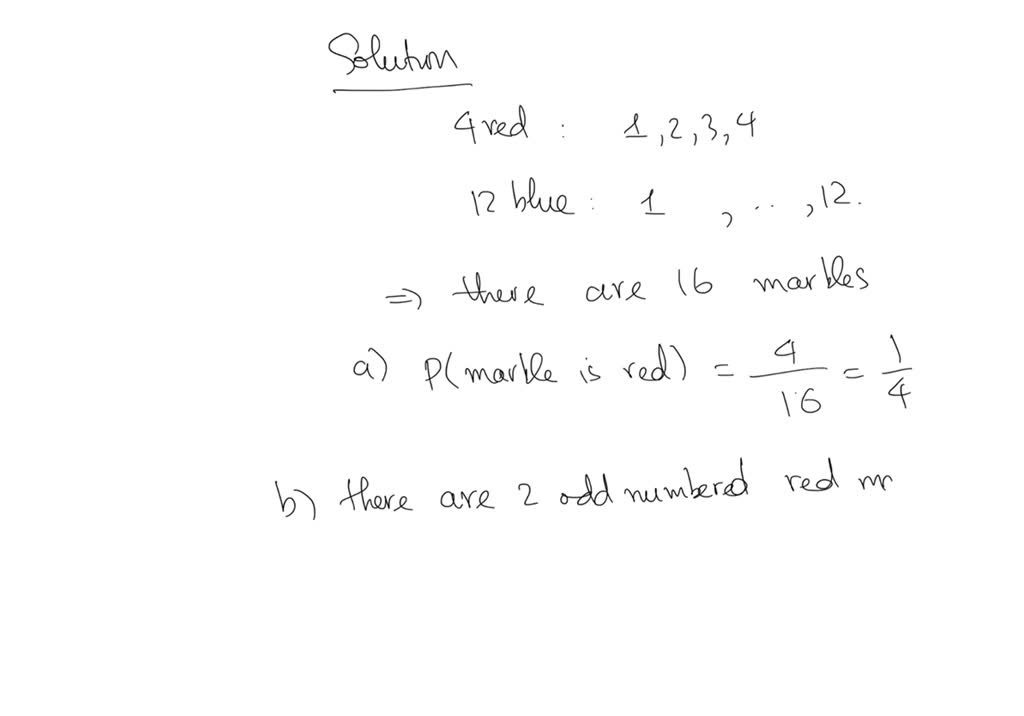 Solution
4 red : 1, 2, 3, 4
12 blue : 1 , .. , 12.
=> there are 16 marbles
a) P(marble is red) = 4/16 = 1/4
b) there are 2 odd numbered red m